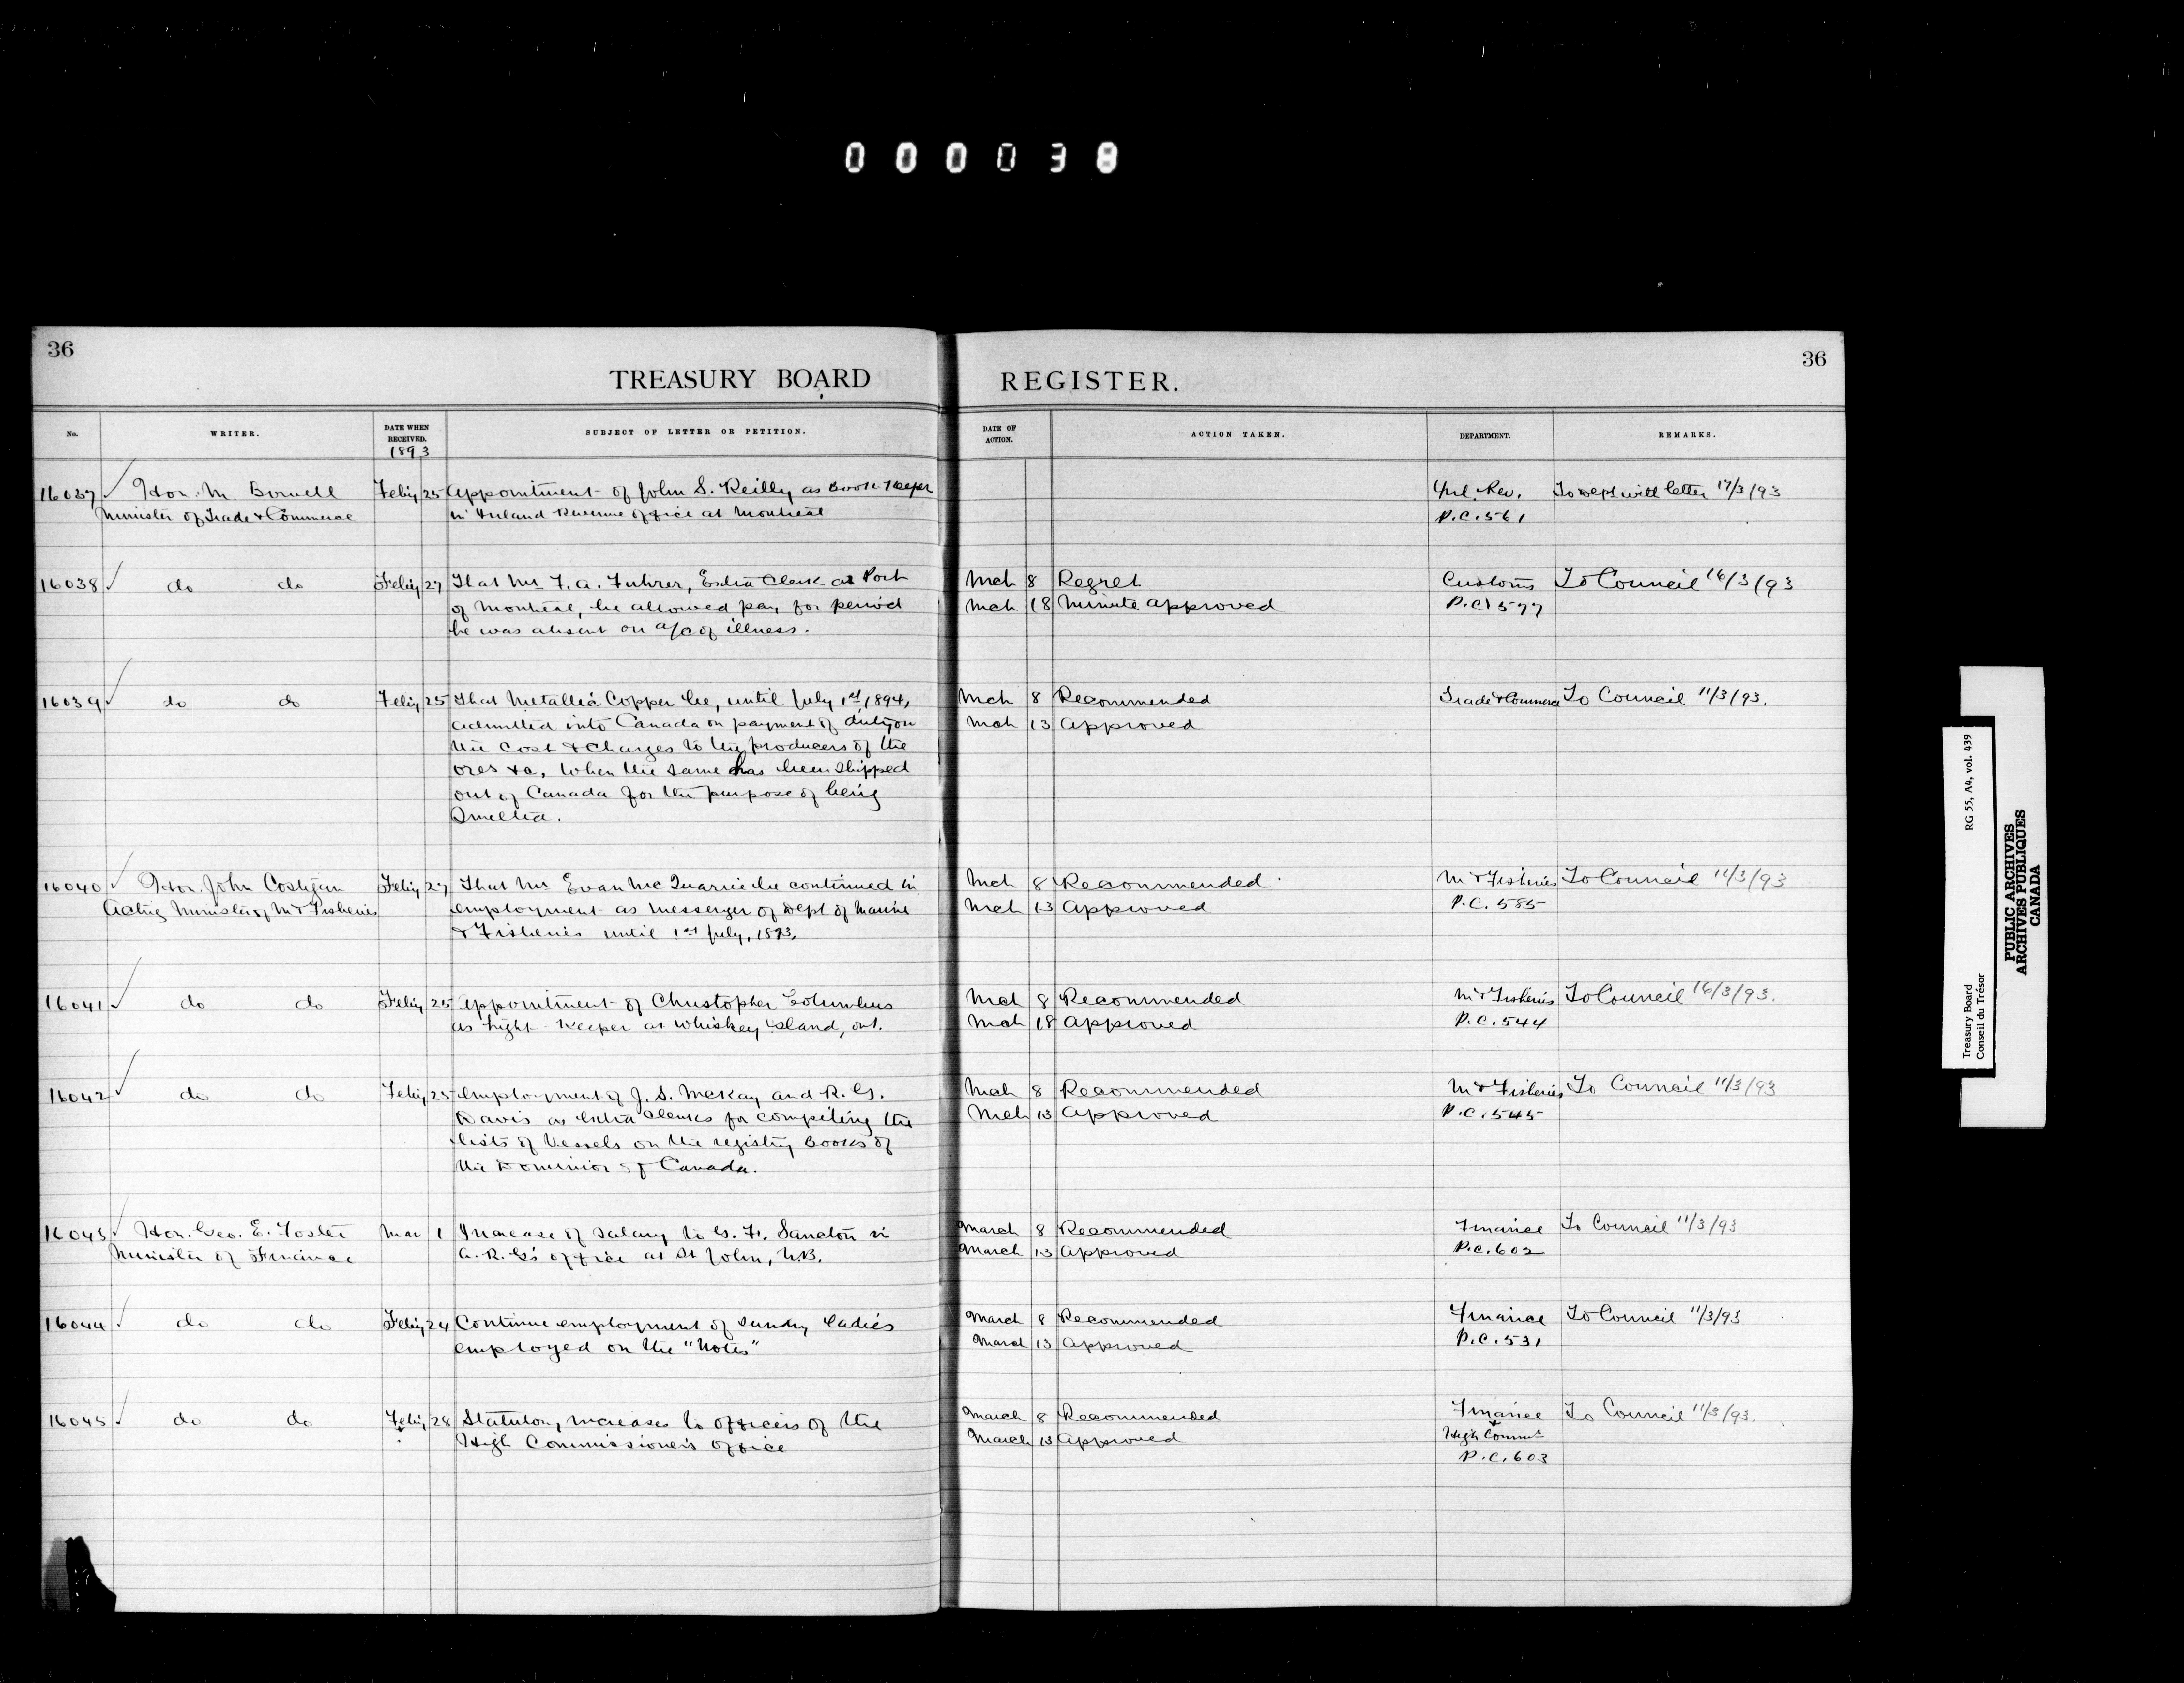 000038
36
36
TREASURY BOARD
REGISTER.
No.
WRITER.
DATE WHEN
RECEIVED.
1893
SUBJECT OF LETTER OR PETITION.
DATE OF
ACTION.
ACTION TAKEN.
DEPARTMENT.
REMARKS.
16037 ✓ Hon. M. Bowell Feby 25 Appointment of John S. Reilly as Book-Keeper Inl. Rev. To Dept with letter 17/3/93
Minister of Trade & Commerce in Inland Revenue office at Montreal P.C. 561
16038 ✓ do do Feby 27 That Mr F. A. Fuhrer, Extra Clerk at Port Mch 8 Regret Customs To Council 16/3/93
of Montreal, be allowed pay for period Mch 18 Minute approved P.C. 577
he was absent on a/c of illness.
16039 ✓ do do Feby 25 That Metallic Copper be, until July 1st 1894, Mch 8 Recommended Trade & Commerce To Council 11/3/93.
admitted into Canada on payment of duty on Mch 13 Approved
the Cost & Charges to the producers of the
ores &c, when the same has been shipped
out of Canada for the purpose of being
Smelted.
16040 ✓ Hon. John Costigan Feby 27 That Mr Evan McQuarrie be continued in Mch 8 Recommended M & Fisheries To Council 11/3/93
Acting Minister of M & Fisheries employment as messenger of Dept of Marine Mch 13 Approved P.C. 585
& Fisheries until 1st July, 1893.
16041 ✓ do do Feby 25 Appointment of Christopher Columbus Mch 8 Recommended M & Fisheries To Council 16/3/93.
as Light-Keeper at Whiskey Island, Ont. Mch 18 Approved P.C. 544
16042 ✓ do do Feby 25 Employment of J. S. McKay and R. G. Mch 8 Recommended M & Fisheries To Council 11/3/93
Davis as Extra Clerks for compiling the Mch 13 Approved P.C. 545
lists of Vessels on the registry Books of
the Dominion of Canada.
16043 ✓ Hon. Geo. E. Foster Mar 1 Increase of Salary to G. F. Sancton in March 8 Recommended Finance To Council 11/3/93
Minister of Finance A. R. G's office at St John, N.B. March 13 Approved P.C. 602
16044 ✓ do do Feby 24 Continue employment of sundry Ladies March 8 Recommended Finance To Council 11/3/93
employed on the "Notes" March 13 Approved P.C. 531
16045 ✓ do do Feby 28 Statutory increases to officers of the March 8 Recommended Finance To Council 11/3/93.
High Commissioner's Office March 13 Approved High Commr
P.C. 603
Treasury Board
Conseil du Trésor
RG 55, A4, vol. 439
PUBLIC ARCHIVES
ARCHIVES PUBLIQUES
CANADA